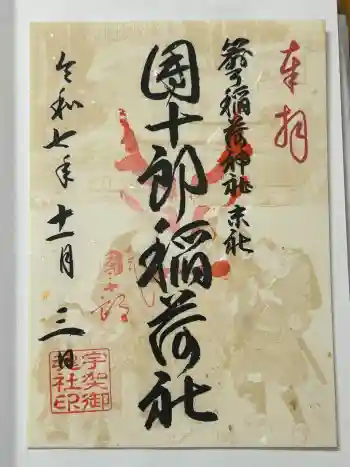 奉拝
箭弓稲荷神社末社
團十郎稲荷社
令和七年十一月三日
團十郎
宇迦之御
魂社印